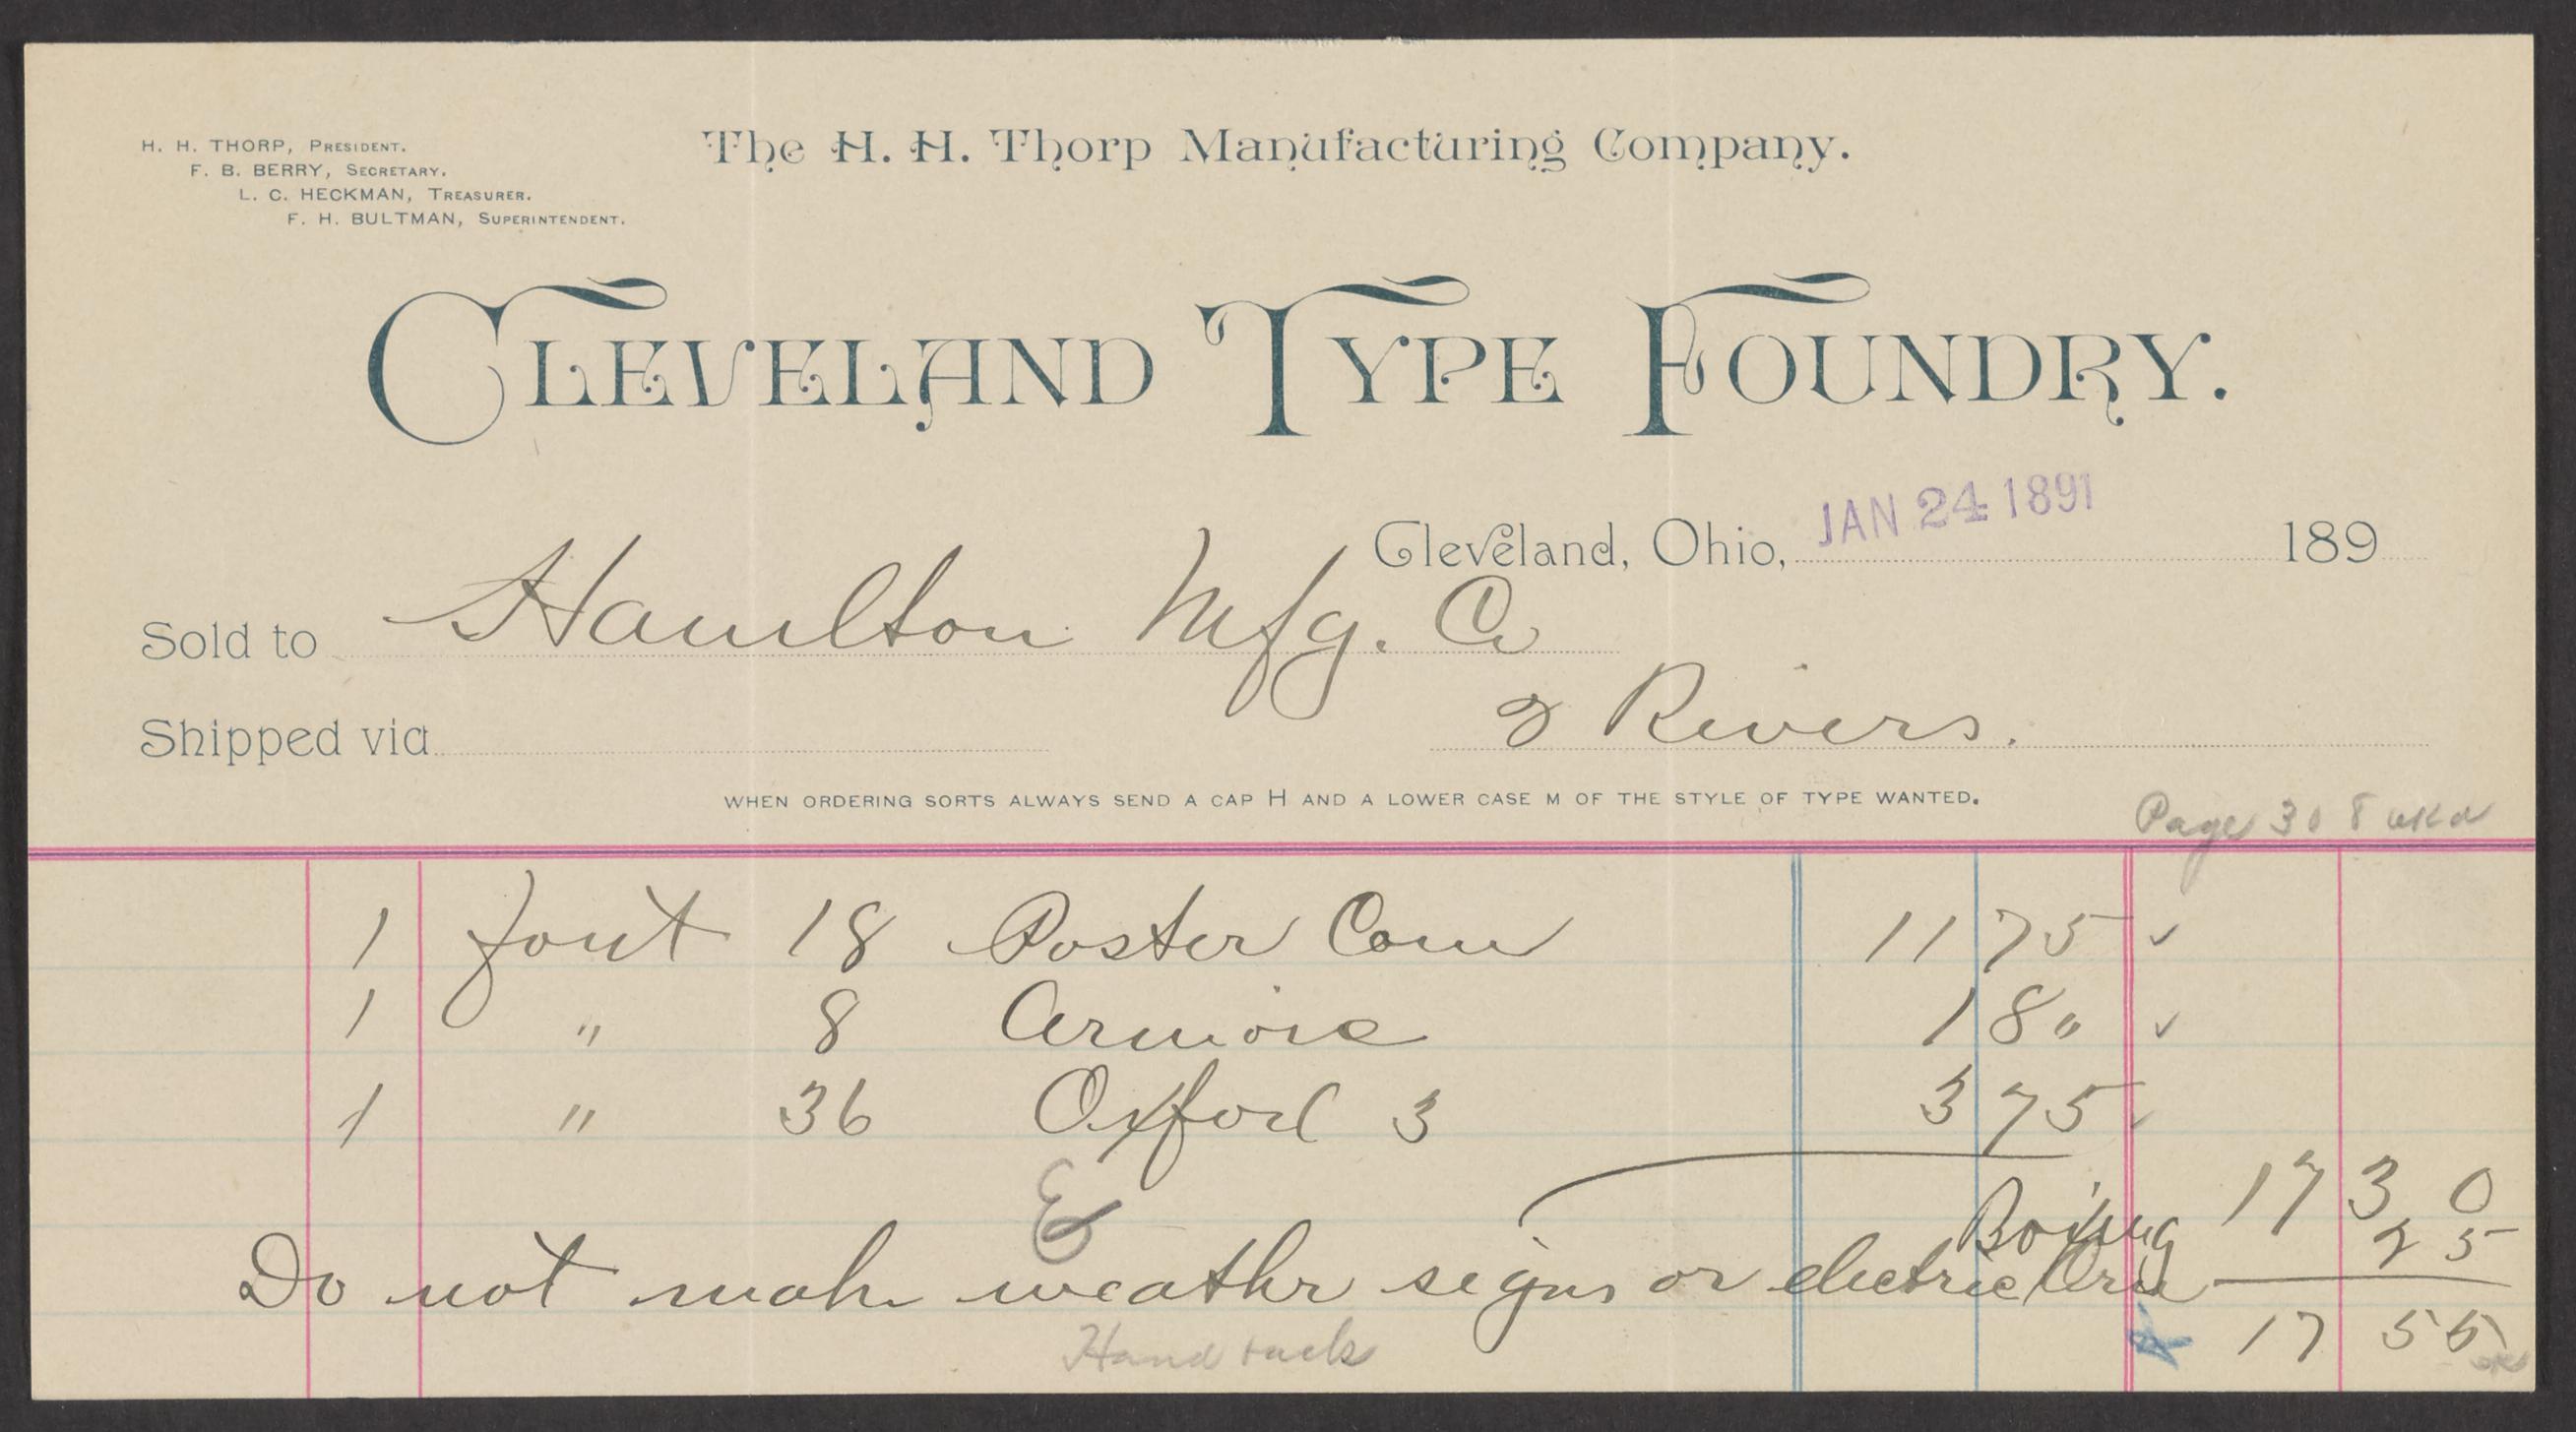 H. H. THORP, PRESIDENT.
F. B. BERRY, SECRETARY.
L. C. HECKMAN, TREASURER.
F. H. BULTMAN, SUPERINTENDENT.
The H. H. Thorp Manufacturing Company.
CLEVELAND TYPE FOUNDRY.
Cleveland, Ohio, JAN 24 1891 189
Sold to Hamilton Mfg. Co
Shipped via 2 Rivers.
WHEN ORDERING SORTS ALWAYS SEND A CAP H AND A LOWER CASE M OF THE STYLE OF TYPE WANTED.
Page 308
1 font 18 Poster Com 11 75 ✓
1 " 8 Armoie 1 80 ✓
1 " 36 Oxford 3 3 75 ✓
17 30
Boxing 25
Do not make weathr signs or electric
17 55
Hand